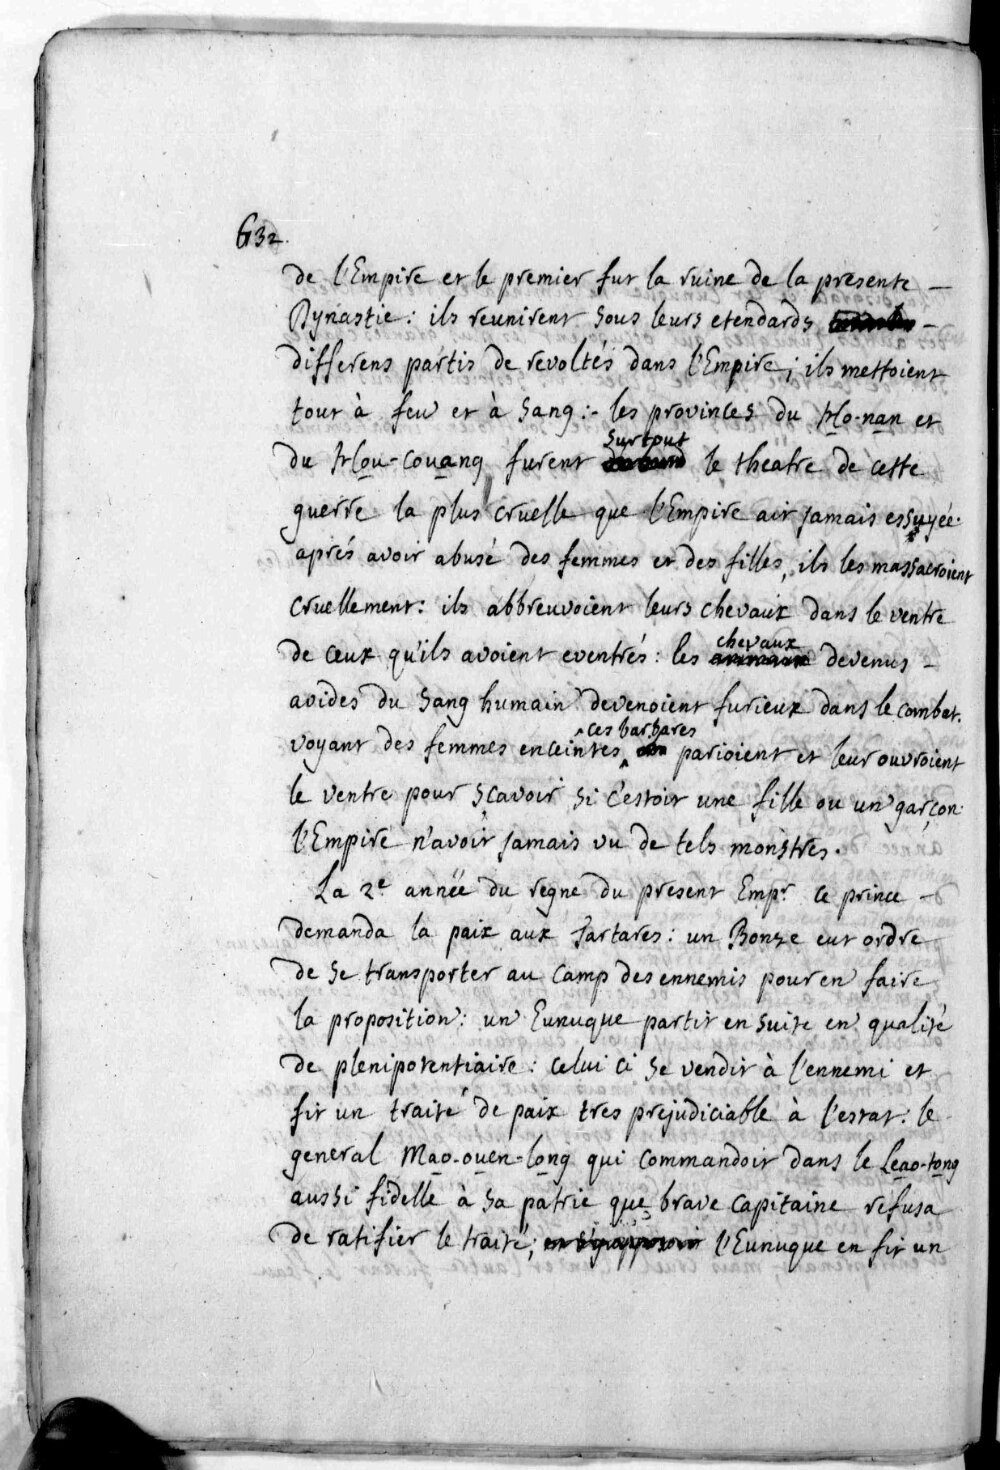 632.
de l'Empire et le premier fut la ruine de la presente
Dynastie : ils reunirent sous leurs etendards
differens partis de revoltés dans l'Empire ; ils mettoient
tout à feu et à sang :- les provinces du Ho-nan et
du Hou-couang furent surtout le theatre de cette
guerre la plus cruelle que l'Empire ait jamais essuyée.
aprés avoir abusé des femmes et des filles, ils les massacroient
cruellement : ils abbreuvoient leurs chevaux dans le ventre
de ceux qu'ils avoient eventrés : les chevaux devenus
avides du sang humain devenoient furieux dans le combat.
voyant des femmes enceintes, ces barbares parioient et leur ouvroient
le ventre pour scavoir si c'estoit une fille ou un garçon.
l'Empire n'avoit jamais vu de tels monstres.
La 2e année du regne du present Empr. ce prince
demanda la paix aux Tartares : un Bonze eut ordre
de se transporter au camp des ennemis pour en faire
la proposition : un Eunuque partit en suite en qualité
de plenipotentiaire : celui ci se vendit à l'ennemi et
fit un traité de paix tres prejudiciable à l'estat : le
general Mao-ouen-long qui commandoit dans le Leao-tong
aussi fidelle à sa patrie que brave capitaine refusa
de ratifier le traité ; l'Eunuque en fit un